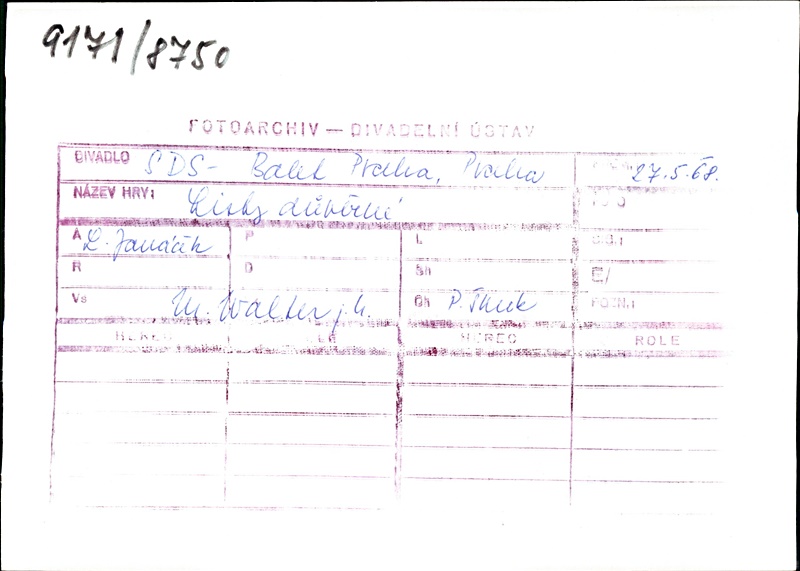 9171/8750
FOTOARCHIV — DIVADELNÍ ÚSTAV
DIVADLO SDS - Balet Praha, Praha 27.5.68.
NÁZEV HRY: Listy důvěrné
A L. Janáček P L Č.S.:
R D Sh E/
Vs M. Walter j.h. Ch P. Šmok POZN.:
HEREC ROLE HEREC ROLE